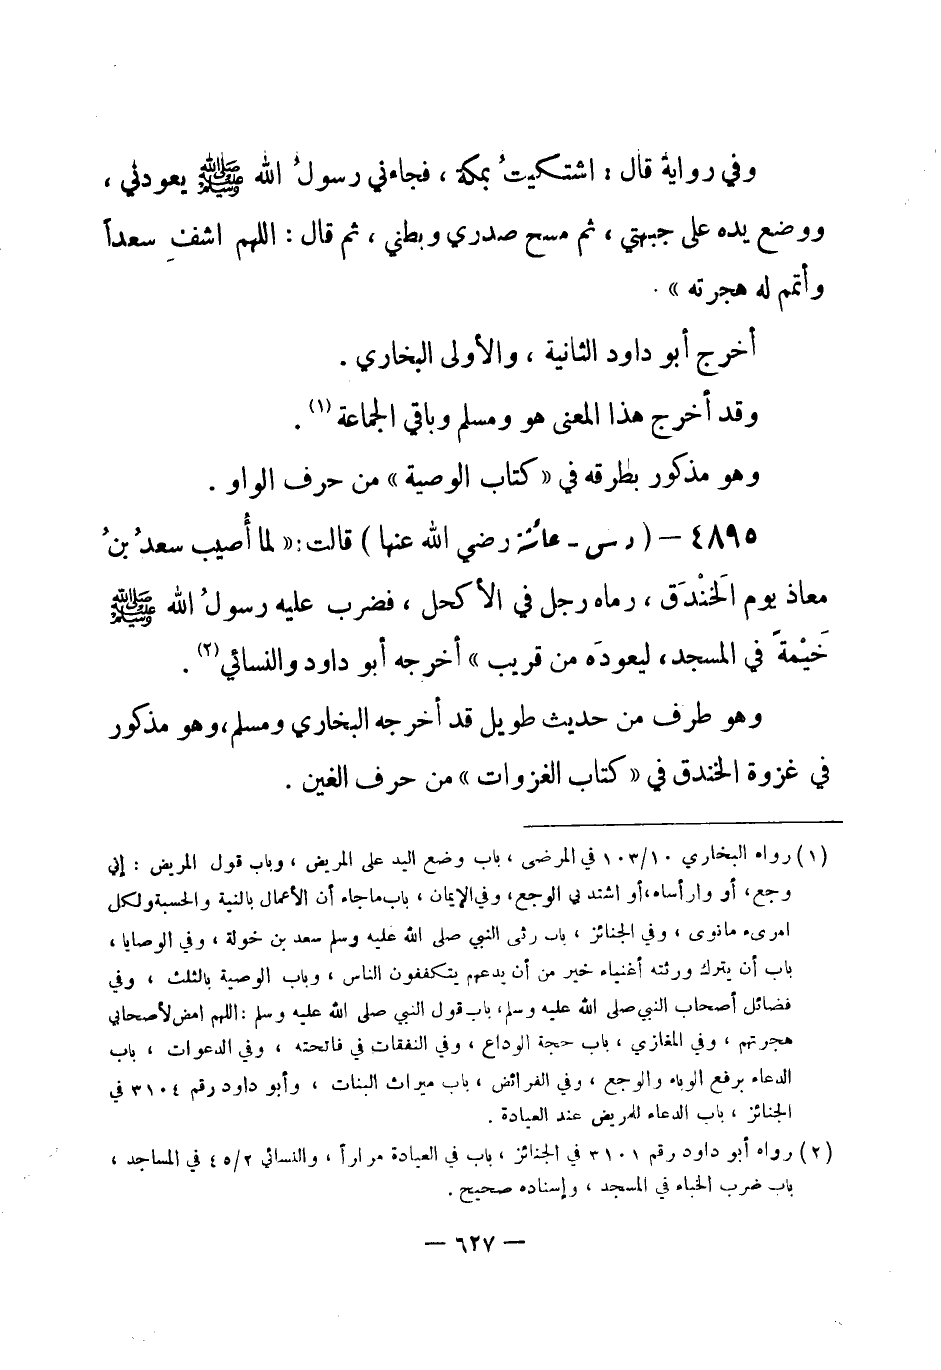 وفي رواية قال : اشتكيتُ بمكة ، فجاءني رسولُ الله ﷺ يعودني ،
ووضع يده على جبهتي ، ثم مسح صدري وبطني ، ثم قال : اللهم اشفِ سعداً
وأتمم له هجرته » .
أخرج أبو داود الثانية ، والأولى البخاري .
وقد أخرج هذا المعنى هو ومسلم وباقي الجماعة (١) .
وهو مذكور بطرقه في « كتاب الوصية » من حرف الواو .
٤٨٩٥ – ( د س - عائشة رضي الله عنها ) قالت : « لما أُصيب سعدُ بنُ
معاذ يوم الَخنْدَق ، رماه رجل في الأكحل ، فضرب عليه رسولُ الله ﷺ
خَيْمةً في المسجد ، ليعودَه من قريب » أخرجه أبو داود والنسائي (٢) .
وهو طرف من حديث طويل قد أخرجه البخاري ومسلم ، وهو مذكور
في غزوة الخندق في « كتاب الغزوات » من حرف الغين .
(١) رواه البخاري ١٠٣/١٠ في المرضى ، باب وضع اليد على المريض ، وباب قول المريض : إني
وجع ، أو وارأساه ، أو اشتد بي الوجع ، وفي الإيمان ، باب ماجاء أن الأعمال بالنية والحسبة ولكل
امرىء مانوى ، وفي الجنائز ، باب رثى النبي صلى الله عليه وسلم سعد بن خولة ، وفي الوصايا ،
باب أن يترك ورثته أغنياء خير من أن يدعهم يتكففون الناس ، وباب الوصية بالثلث ، وفي
فضائل أصحاب النبي صلى الله عليه وسلم ، باب قول النبي صلى الله عليه وسلم : اللهم امض لأصحابي
هجرتهم ، وفي المغازي ، باب حجة الوداع ، وفي النفقات في فاتحته ، وفي الدعوات ، باب
الدعاء برفع الوباء والوجع ، وفي الفرائض ، باب ميراث البنات ، وأبو داود رقم ٣١٠٤ في
الجنائز ، باب الدعاء للمريض عند العيادة .
(٢) رواه أبو داود رقم ٣١٠١ في الجنائز ، باب في العيادة مراراً ، والنسائي ٤٥/٢ في المساجد ،
باب ضرب الخباء في المسجد ، وإسناده صحيح .
– ٦٢٧ –